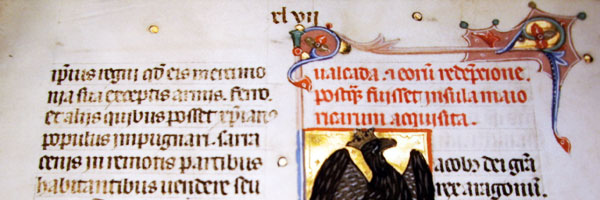 xl vii
ip̃ius regni qđ eis mercimo
nia sua exceptis armis. ferro.
et aliis quibus posset xp̃ianꝰ
populus impugnari. sarra
cenis in remotis partibus
habitantibus uendere seu
ualcada a eorũ redẽpcione.
postq̃ fuisset insula maio
ricarum acquisita.
acobꝰ dei gr̃a
rex aragonũ.